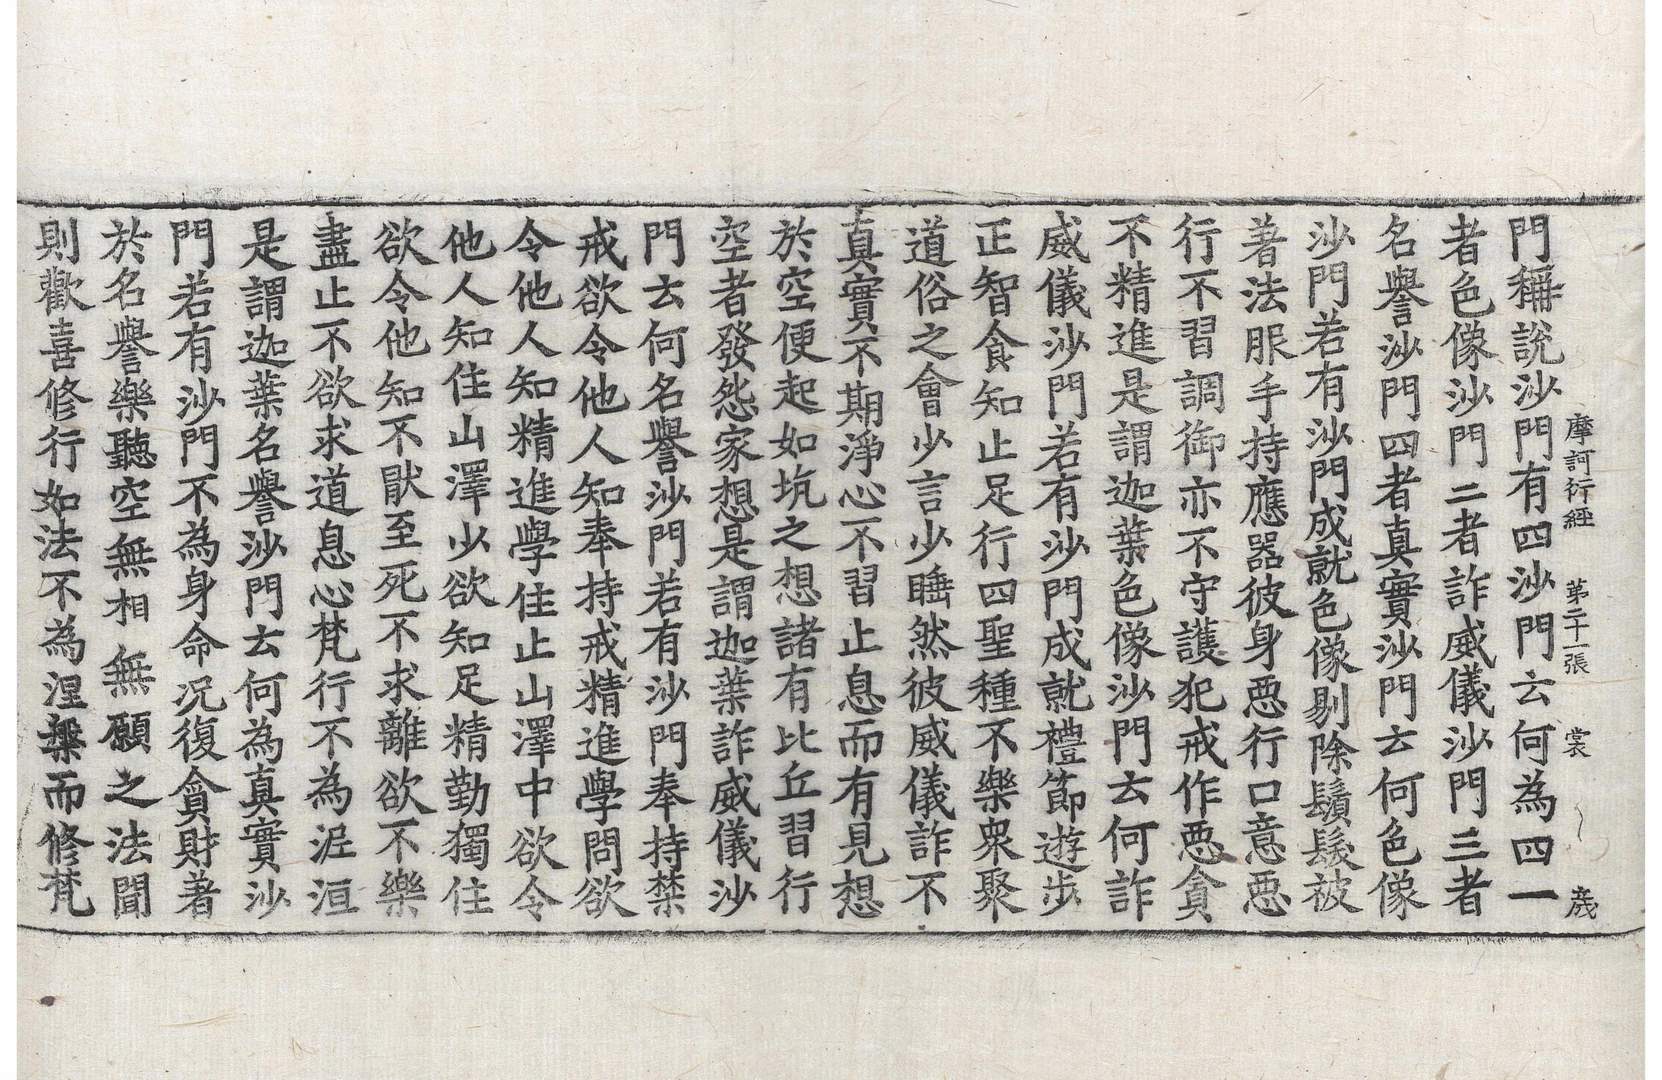 摩訶衍經 第二十一張 裳
門稱說沙門有四沙門云何為四一
者色像沙門二者詐威儀沙門三者
名譽沙門四者真實沙門云何色像
沙門若有沙門成就色像剔除鬚髮被
著法服手持應器彼身惡行口意惡
行不習調御亦不守護犯戒作惡貪
不精進是謂迦葉色像沙門云何詐
威儀沙門若有沙門成就禮節遊步
正智食知止足行四聖種不樂眾聚
道俗之會少言少睡然彼威儀詐不
真實不期淨心不習止息而有見想
於空便起如坑之想諸有比丘習行
空者發怨家想是謂迦葉詐威儀沙
門云何名譽沙門若有沙門奉持禁
戒欲令他人知奉持戒精進學問欲
令他人知精進學住止山澤中欲令
他人知住山澤少欲知足精勤獨住
欲令他知不猒至死不求離欲不樂
盡止不欲求道息心梵行不為泥洹
是謂迦葉名譽沙門云何為真實沙
門若有沙門不為身命況復貪財著
於名譽樂聽空無相無願之法聞
則歡喜修行如法不為涅槃而修梵